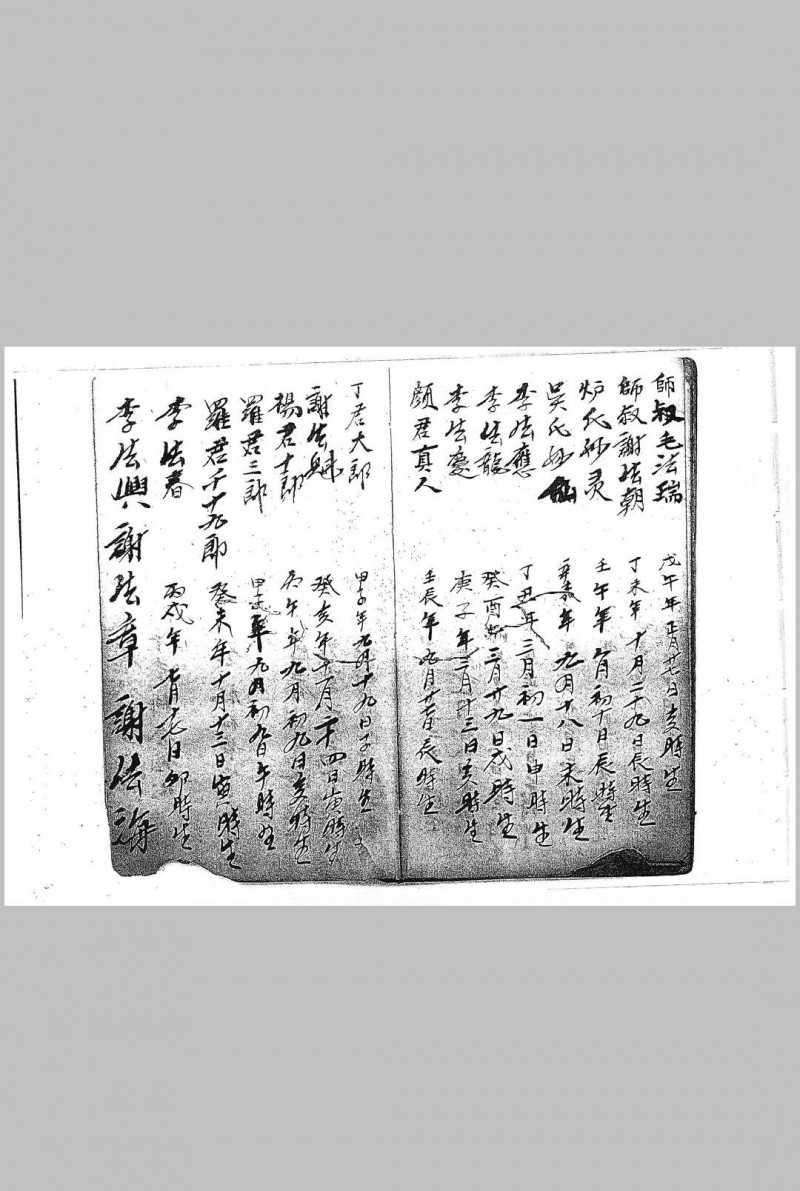 師叔毛法瑞 戊午年正月廿七日亥時生
師叔謝法朝 丁未年十月二十九日辰時生
炉氏妙灵 壬午年 月初十日辰時生
吳氏妙仙 年九月十八日未時生
李法應 丁丑年三月初一日申時生
李法龍 癸酉年三月廿九日戌時生
李法慶 庚子年三月廿三日亥時生
顏君真人 壬辰年九月廿 日辰時生
丁君大郎 甲子年九月十九日子時生
謝法魁 癸亥年十一月二十四日寅時生
楊君十郎 丙午年九月初九日亥時生
羅君三郎 甲子年九月初九日午時生
羅君二十九郎 癸未年十月十三日寅時生
李法春 丙戌年七月十 日卯時生
李法興 謝法章 謝法海